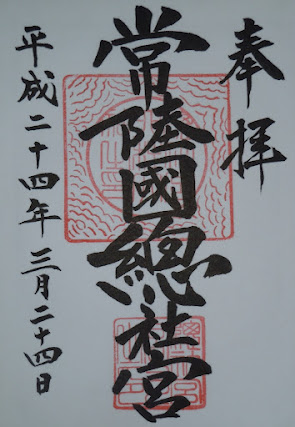 奉拝
常陸國總社宮
平成二十四年三月二十四日